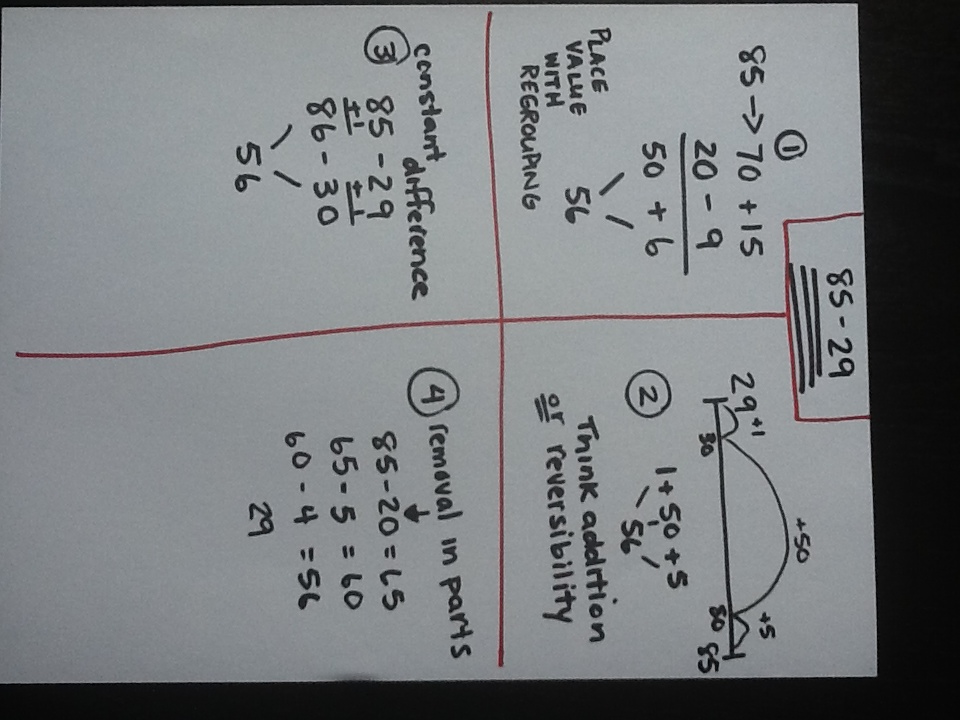 85 - 29
①
85 → 70 + 15
20 - 9
50 + 6
56
PLACE
VALUE
WITH
REGROUPING
+50
+1
+5
29
30
80
85
②
1 + 50 + 5
56
Think addition
or reversibility
③
constant
difference
85 - 29
+1 +1
86 - 30
56
④ removal in parts
85 - 20 = 65
65 - 5 = 60
60 - 4 = 56
29